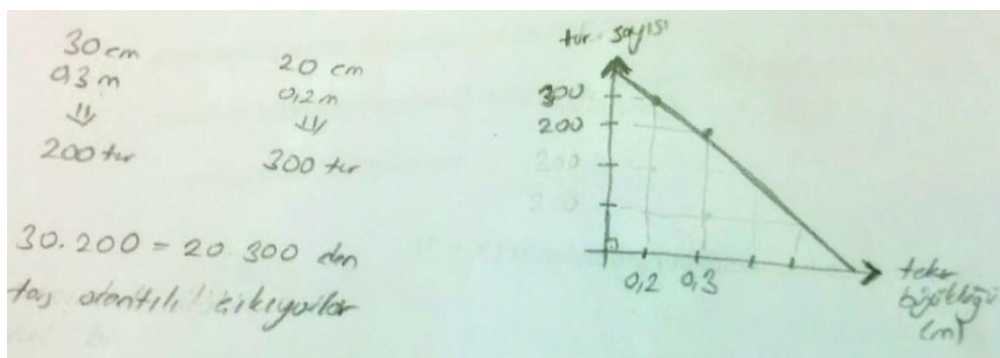 30 cm
0,3 m
200 tur
20 cm
0,2 m
300 tur
30.200 = 20.300 den
ters orantılı çıkıyorlar
tur sayısı
300
200
200
0,2 0,3
teker
büyüklüğü
(m)